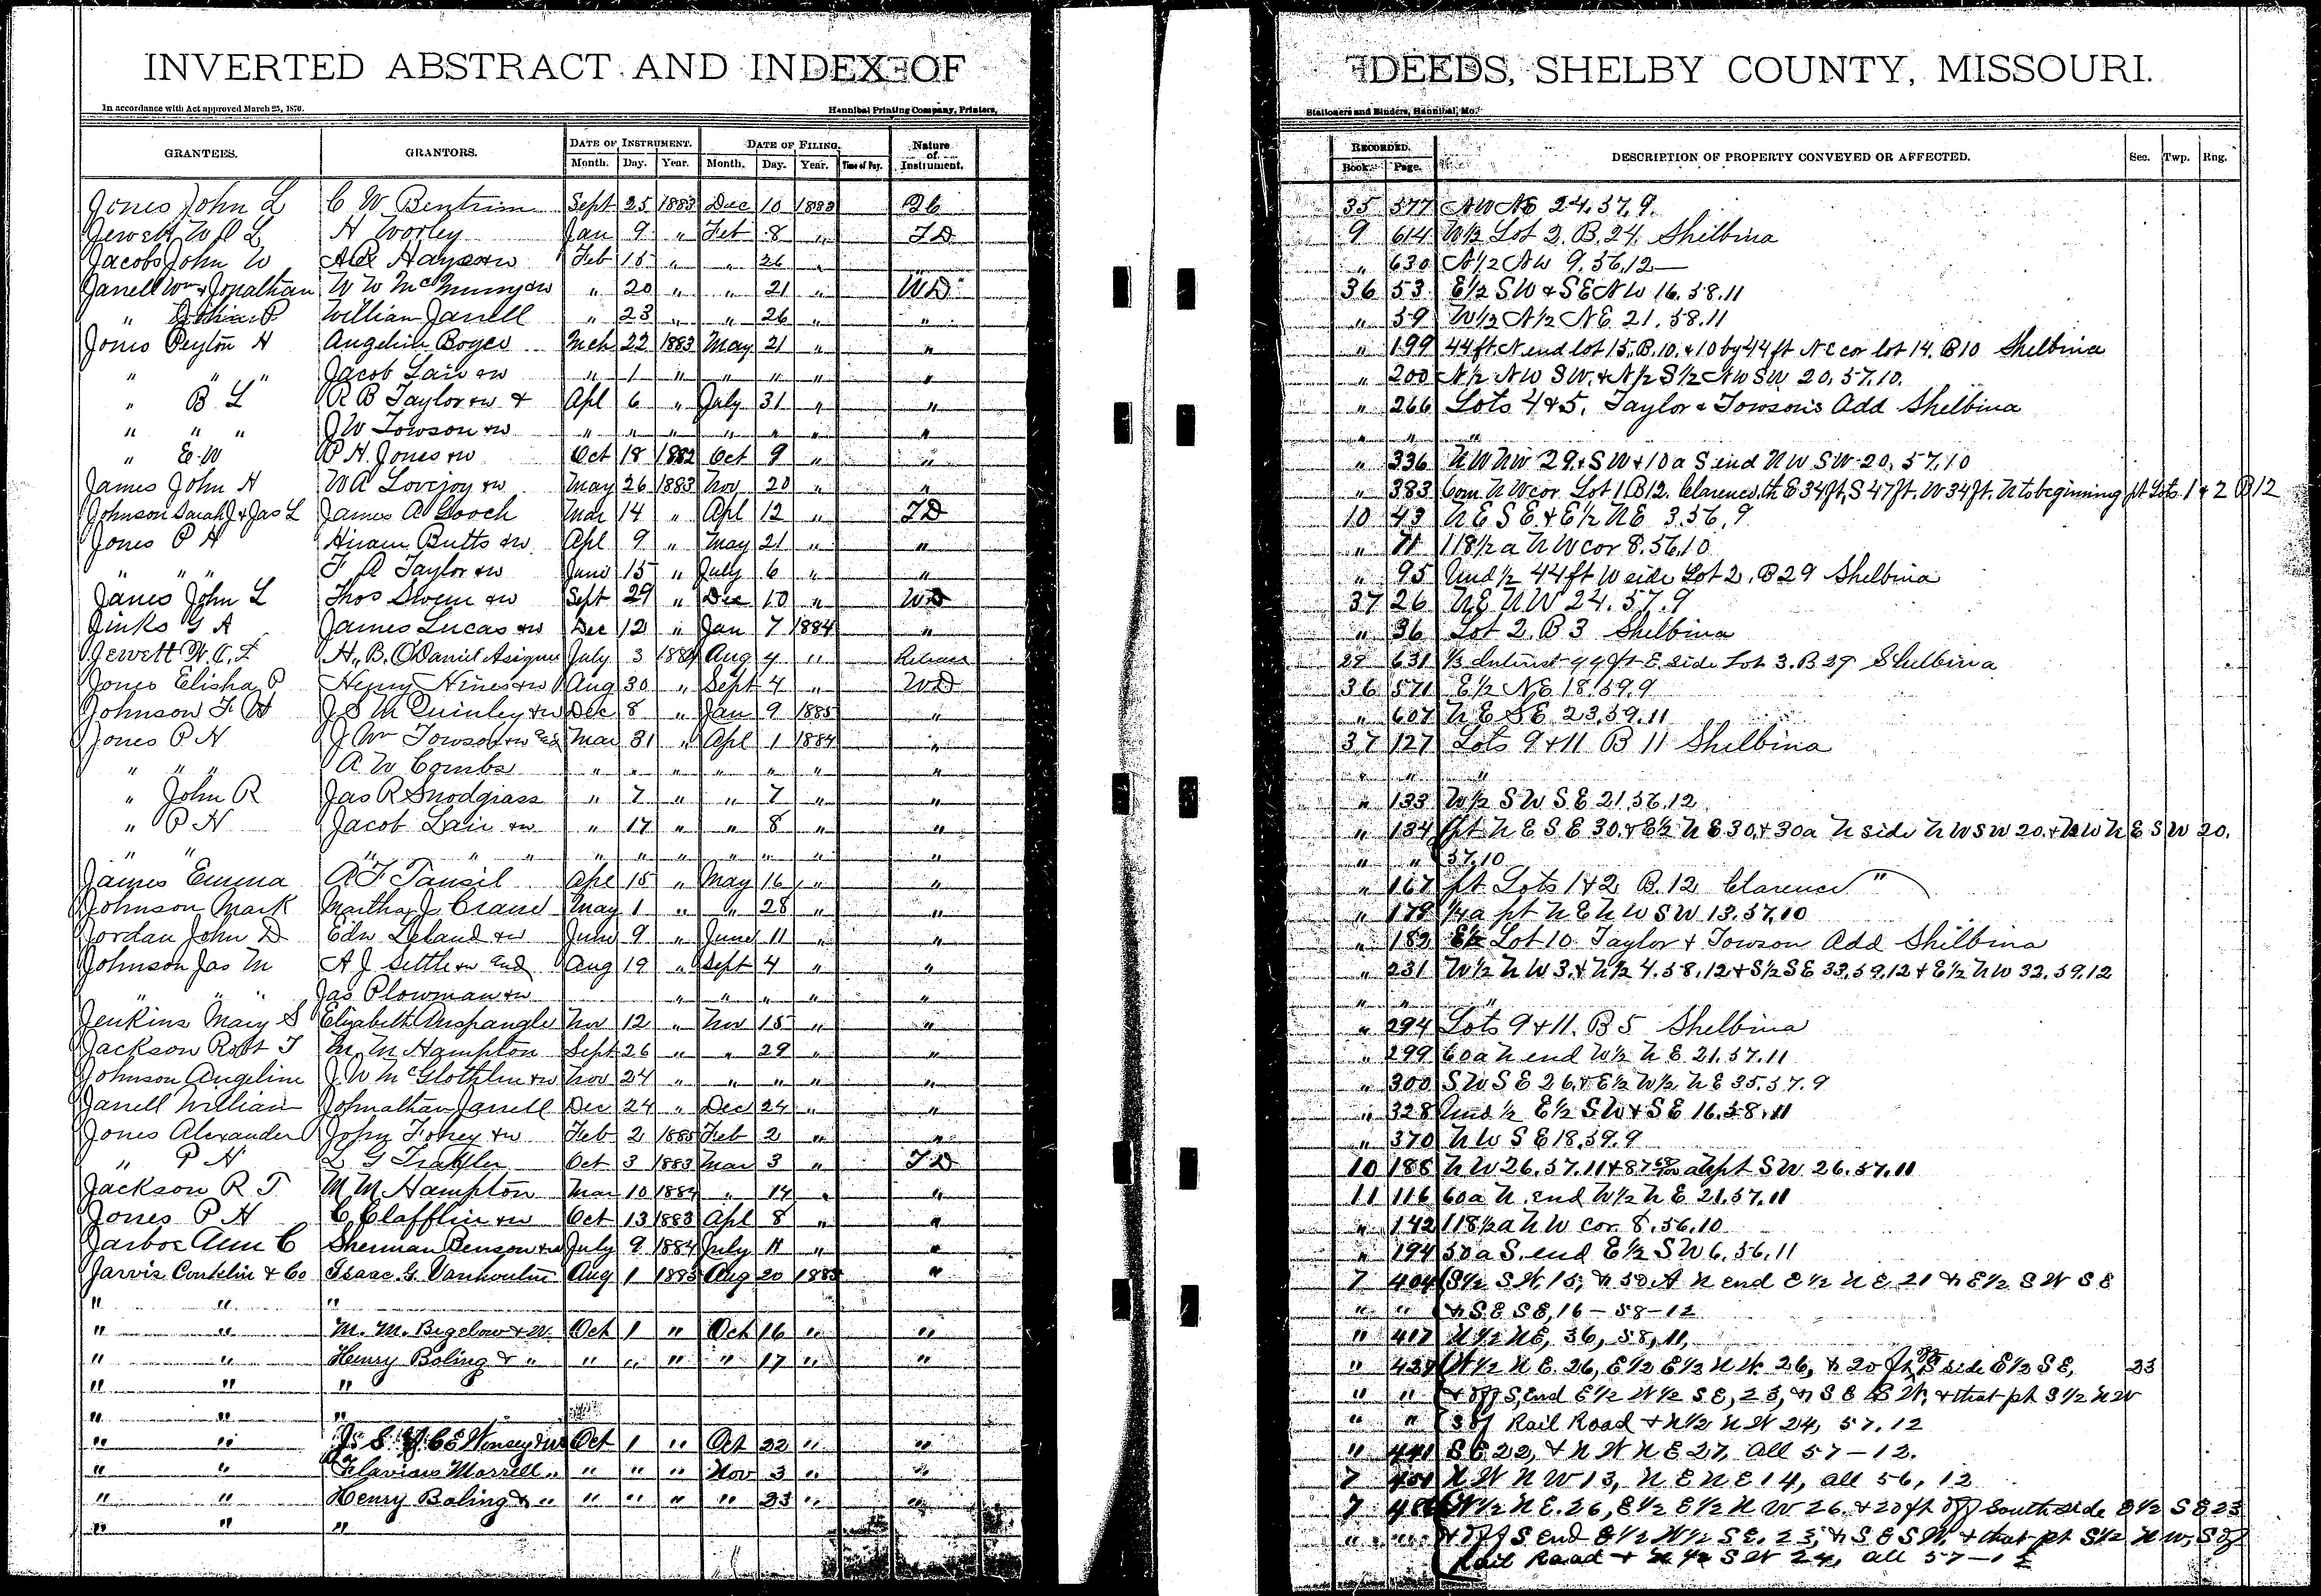 INVERTED ABSTRACT AND INDEX OF
DEEDS, SHELBY COUNTY, MISSOURI.
In accordance with Act approved March 25, 1870.
Hannibal Printing Company, Printers,
Stationers and Binders, Hannibal, Mo.
GRANTEES. GRANTORS. DATE OF INSTRUMENT. DATE OF FILING. Nature of Instrument. RECORDED. DESCRIPTION OF PROPERTY CONVEYED OR AFFECTED. Sec. Twp. Rng.
Month. Day. Year. Month. Day. Year. Time of Day. Book. Page.
Jones John L C W Bentrim Sept 25 1883 Dec 10 1883 35 577 NW NE 24.57.9.
Jewett W C L H Worley Jan 9 " Feb 8 " TD 9 614 W½ Lot 2. B.24. Shelbina
Jacobs John W Hayes & w Feb 15 " " 26 " " 630 N½ NW 9.56.12
Janell Wm & Jonathan W W McMurry & w " 20 " " 21 " WD 36 53 E½ SW & SE NW 16.58.11
" William Janell " 23 " " 26 " " " 59 W½ N½ NE 21.58.11
Jones Peyton H Angelin Boyce Mch 22 1883 May 21 " " " 199 44 ft. N end lot 15. B.10. & 10 by 44 ft N E cor lot 14. B10 Shelbina
" " " Jacob Lair & w " 1 " " " " " " 200 N½ NW SW. & N½ S½ NW SW 20.57.10.
" B L R B Taylor & w & Apl 6 " July 31 " " " 266 Lots 4 & 5. Taylor & Towson's Add Shelbina
" " " J W Towson & w " " " " " " " " " "
" E W P H Jones & w Oct 18 1882 Oct 9 " " " 336 NW NW 29. & SW & 10 a S end NW SW 20.57.10
James John H W A Lovejoy & w May 26 1883 Nov 20 " " " 383 Com N W cor Lot 1 B12. Clarence, th E 34 ft, S 47 ft. W 34 ft. N to beginning pt Lots 1 & 2 B12
Johnson Sarah J & Jas L James A Gooch Mar 14 " Apl 12 " TD 10 43 NE SE & E½ NE 3.56.9
Jones P H Hiram Butts & w Apl 9 " May 21 " " " 71 118½ a NW cor 8.56.10
" " " F A Taylor & w June 15 " July 6 " " " 95 Und ½ 44 ft W side Lot 2. B29 Shelbina
Janes John L Thos Swem & w Sept 29 " Dec 10 " WD 37 26 NE NW 24.57.9
Jinks G A James Lucas & w Dec 12 " Jan 7 1884 " " 36 Lot 2. B3 Shelbina
Jewett W. C. L H. B. O'Daniel Asignee July 3 1884 Aug 4 " Release 29 631 ⅓ Interest 44 ft E. side Lot 3. B 29 Shelbina
Jones Elisha P Henry Hines & w Aug 30 " Sept 4 " WD 36 571 E½ NE 18.59.9
Johnson F W J S McQuinley & w Dec 8 " Jan 9 1885 " " 607 NE SE 23.59.11
Jones P H J Wm Towson & w and Mar 31 " Apl 1 1884 " 37 127 Lots 9 & 11 B 11 Shelbina
" " " A W Combs " " " " " " " " " "
" John R Jas R Snodgrass " 7 " " 7 " " " 133 W½ SW SE 21.56.12
" P H Jacob Lair & w " 17 " " 8 " " " 134 pt NE SE 30. & E½ NE 30. & 30 a N side NW SW 20. & NW NE SW 20.
" " " " " " " " " " " " " " 57.10
James Emma A F Tansil Apl 15 " May 16 " " " 167 pt Lots 1 & 2 B.12 Clarence "
Johnson Mark Martha J Crane May 1 " " 28 " " " 178 ¼ a pt NE NW SW 13.57.10
Jordan John D Edw Leland & w June 9 " June 11 " " " 182 E½ Lot 10 Taylor & Towson Add Shelbina
Johnson Jas M A J Settle & w and Aug 19 " Sept 4 " " " 231 W½ NW 3. & N½ 4.58.12 & S½ SE 33.59.12 & E½ NW 32.59.12
" " " Jas Plowman & w " " " " " " " "
Jenkins Mary S Elizabeth Auspangle Nov 12 " Nov 15 " " " 294 Lots 9 & 11. B 5 Shelbina
Jackson Robt T M. M Hampton Sept 26 " " 29 " " " 299 60 a N end W½ NE 21.57.11
Johnson Angeline J W McGlothlin & w Nov 24 " " " " " " 300 SW SE 26. & E½ W½ NE 35.57.9
Janell William Johnathan Janell Dec 24 " Dec 24 " " " 328 Und ½ E½ SW & SE 16.58.11
Jones Alexander John Fohey & w Feb 2 1885 Feb 2 " " " 370 NW SE 18.59.9
" P H Oct 3 1883 Mar 3 " TD 10 188 NW 26.57.11 & 87 a pt SW 26.57.11
Jackson R T M M Hampton Mar 10 1884 " 14 " " 11 116 60 a N. end W½ NE 21.57.11
Jones P H C Clafflin & w Oct 13 1883 Apl 8 " " " 142 118½ a NW cor 8.56.10
Jarboe Ann C Sherman Benson & w July 9 1884 July 11 " " " 194 50 a S. end E½ SW 6.56.11
Jarvis Conklin & Co Isaac G. Vanhoutin Aug 1 1885 Aug 20 1885 " 7 404 S½ SW. 15; & 50 A N end E½ NE. 21 & E½ SW SE
" " " " " & SE SE, 16 – 58 – 12
" " M. M. Bigelow & W. Oct 1 " Oct 16 " " " 417 N½ NE, 36, 58, 11,
" " Henry Boling & " " " " " 17 " " " 424 W½ NE. 26, E½ E½ NW. 26, & 20 ft off S side E½ SE, 23
" " " " " & off S. End E½ W½ SE, 23, & SE SW, & that pt S½ NW
" " " " " S of Rail Road & N½ NW 24, 57, 12
" " Wonsey & w Oct 1 " Oct 22 " " " 441 SE 22, & NW NE 27, all 57 – 12.
" " Flavious Morrell " " " " Nov 3 " " 7 451 NW NW 13, NE NE 14, all 56, 12
" " Henry Boling & " " " " " 23 " " 7 486 W½ NE. 26, E½ E½ NW 26. & 20 ft off South side E½ SE 23
" " " " " & off S End E½ W½ SE. 23, & SE SW. & that pt S½ NW, S of
Rail Road & N½ SW 24, all 57 – 12